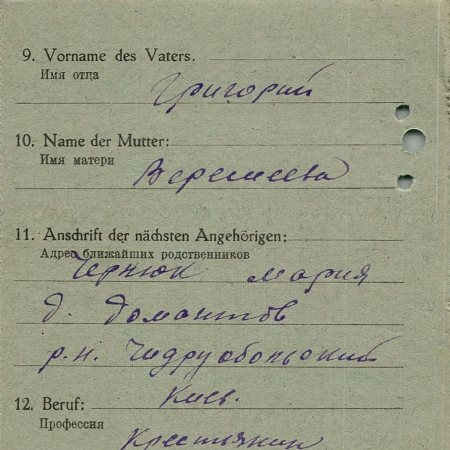 9. Vorname des Vaters.
Имя отца
Григорий
10. Name der Mutter:
Имя матери
Веремеева
11. Anschrift der nächsten Angehörigen:
Адрес ближайших родственников
Чернюк Мария
д. Домантов
р.н.
Киев.
12. Beruf:
Профессия
Крестьянин